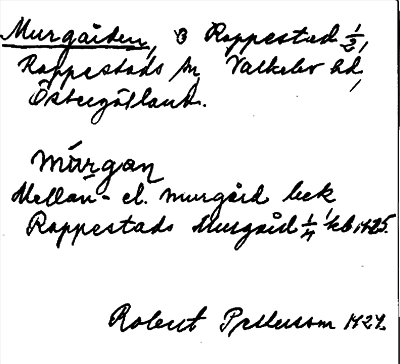 Murgården, B Rappestad 1/2,
Rappestads sn, Valkebo hd,
Östergötland.
múrgan
Mellan- el. murgård bek
Rappestads Murgård 1/4 kb 1425.
Robert Pettersson 1927.